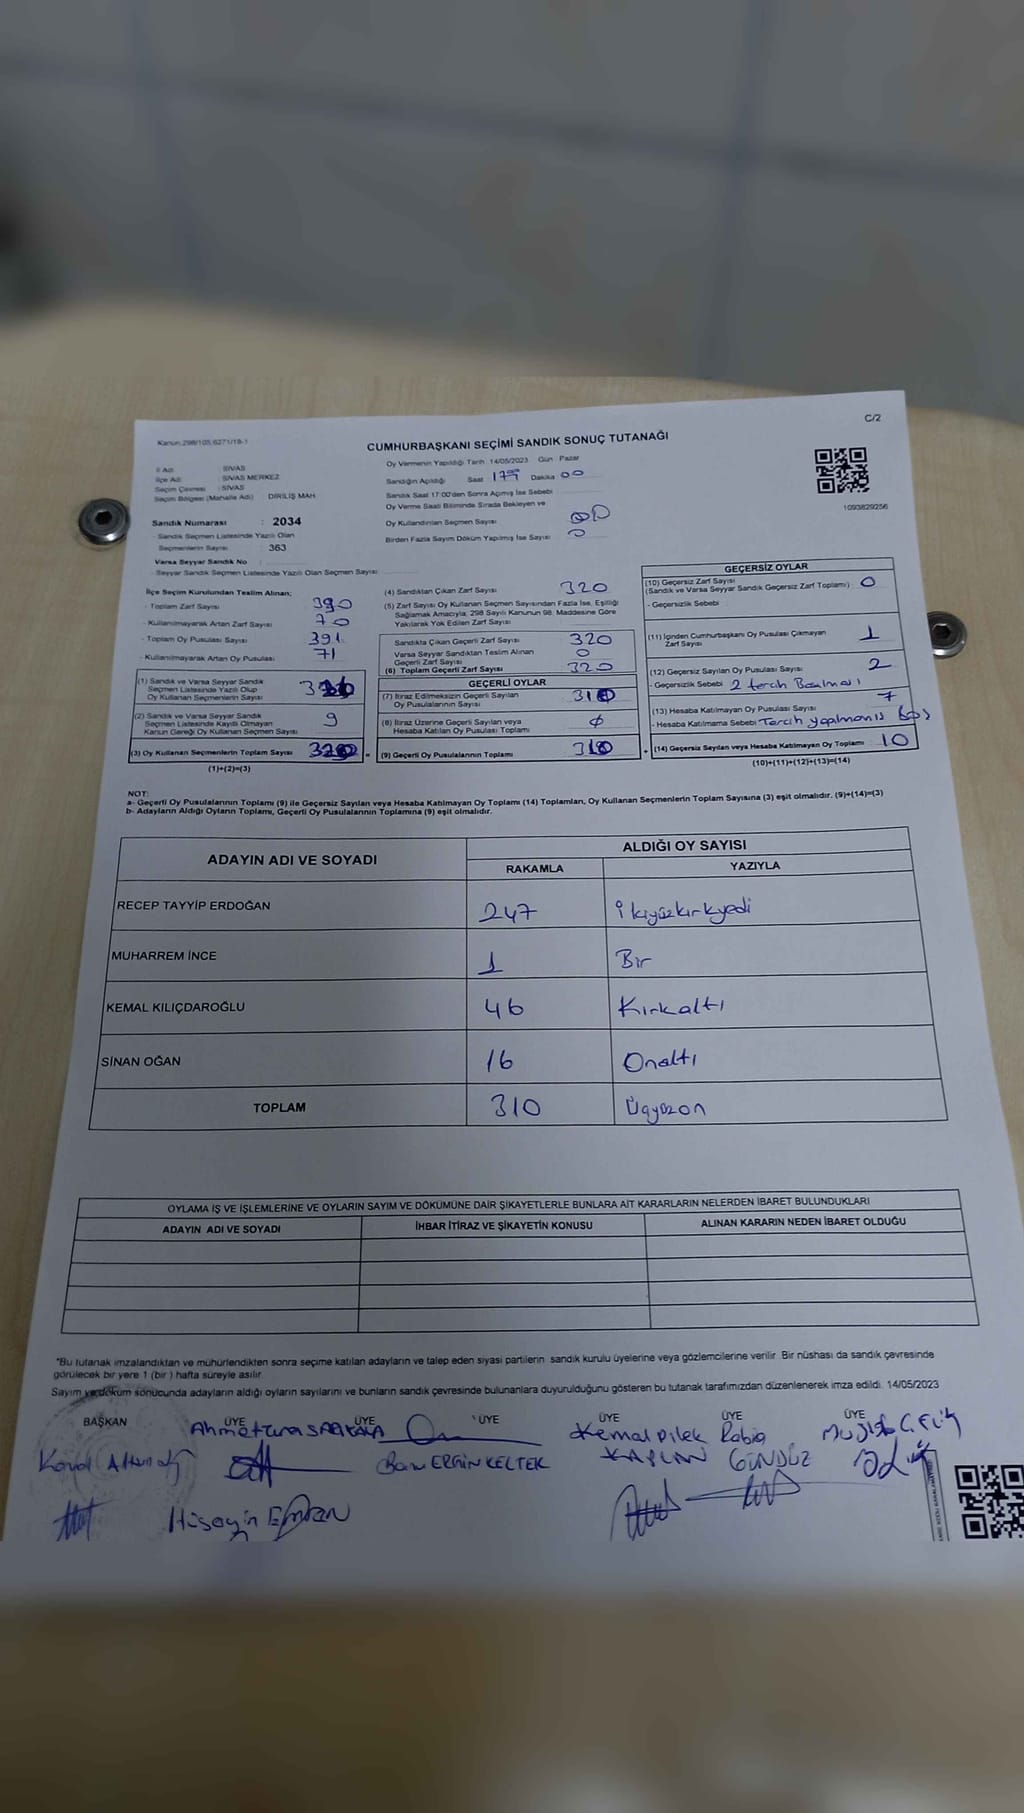 C/2
Kanun 298/105,6271/18-1
CUMHURBAŞKANI SEÇİMİ SANDIK SONUÇ TUTANAĞI
İl Adı : SİVAS
İlçe Adı : SİVAS MERKEZ
Seçim Çevresi : SİVAS
Seçim Bölgesi (Mahalle Adı) DİRİLİŞ MAH
Sandık Numarası : 2034
- Sandık Seçmen Listesinde Yazılı Olan
Seçmenlerin Sayısı : 363
Varsa Seyyar Sandık No :
- Seyyar Sandık Seçmen Listesinde Yazılı Olan Seçmen Sayısı
Oy Vermenin Yapıldığı Tarih :14/05/2023 Gün : Pazar
Sandığın Açıldığı Saat Dakika 00
Sandık Saat 17:00'den Sonra Açılmış İse Sebebi
Oy Verme Saati Bitiminde Sırada Bekleyen ve
Oy Kullandırılan Seçmen Sayısı
Birden Fazla Sayım Döküm Yapılmış İse Sayısı 0
1093829256
İlçe Seçim Kurulundan Teslim Alınan;
- Toplam Zarf Sayısı 390
- Kullanılmayarak Artan Zarf Sayısı 70
- Toplam Oy Pusulası Sayısı 391
- Kullanılmayarak Artan Oy Pusulası 71
(1) Sandık ve Varsa Seyyar Sandık
Seçmen Listesinde Yazılı Olup
Oy Kullanan Seçmenlerin Sayısı
(2) Sandık ve Varsa Seyyar Sandık
Seçmen Listesinde Kayıtlı Olmayan
Kanun Gereği Oy Kullanan Seçmen Sayısı 9
(3) Oy Kullanan Seçmenlerin Toplam Sayısı =
(1)+(2)=(3)
(4) Sandıktan Çıkan Zarf Sayısı 320
(5) Zarf Sayısı Oy Kullanan Seçmen Sayısından Fazla İse, Eşitliği
Sağlamak Amacıyla, 298 Sayılı Kanunun 98. Maddesine Göre
Yakılarak Yok Edilen Zarf Sayısı
Sandıkta Çıkan Geçerli Zarf Sayısı 320
Varsa Seyyar Sandıktan Teslim Alınan
Geçerli Zarf Sayısı 0
(6) Toplam Geçerli Zarf Sayısı 320
GEÇERLİ OYLAR
(7) İtiraz Edilmeksizin Geçerli Sayılan
Oy Pusulalarının Sayısı 310
(8) İtiraz Üzerine Geçerli Sayılan veya
Hesaba Katılan Oy Pusulası Toplamı
(9) Geçerli Oy Pusulalarının Toplamı 310 +
GEÇERSİZ OYLAR
(10) Geçersiz Zarf Sayısı
(Sandık ve Varsa Seyyar Sandık Geçersiz Zarf Toplamı) 0
- Geçersizlik Sebebi
(11) İçinden Cumhurbaşkanı Oy Pusulası Çıkmayan
Zarf Sayısı 1
(12) Geçersiz Sayılan Oy Pusulası Sayısı 2
- Geçersizlik Sebebi 2 tercih
(13) Hesaba Katılmayan Oy Pusulası Sayısı 7
- Hesaba Katılmama Sebebi Tercih yapılmamış Boş
(14) Geçersiz Sayılan veya Hesaba Katılmayan Oy Toplamı 10
(10)+(11)+(12)+(13)=(14)
NOT:
a- Geçerli Oy Pusulalarının Toplamı (9) ile Geçersiz Sayılan veya Hesaba Katılmayan Oy Toplamı (14) Toplamları, Oy Kullanan Seçmenlerin Toplam Sayısına (3) eşit olmalıdır. (9)+(14)=(3)
b- Adayların Aldığı Oyların Toplamı, Geçerli Oy Pusulalarının Toplamına (9) eşit olmalıdır.
ADAYIN ADI VE SOYADI ALDIĞI OY SAYISI
RAKAMLA YAZIYLA
RECEP TAYYİP ERDOĞAN 247 ikiyüzkırkyedi
MUHARREM İNCE 1 Bir
KEMAL KILIÇDAROĞLU 46 Kırkaltı
SİNAN OĞAN 16 Onaltı
TOPLAM 310 Üçyüzon
OYLAMA İŞ VE İŞLEMLERİNE VE OYLARIN SAYIM VE DÖKÜMÜNE DAİR ŞİKAYETLERLE BUNLARA AİT KARARLARIN NELERDEN İBARET BULUNDUKLARI
ADAYIN ADI VE SOYADI İHBAR İTİRAZ VE ŞİKAYETİN KONUSU ALINAN KARARIN NEDEN İBARET OLDUĞU
*Bu tutanak imzalandıktan ve mühürlendikten sonra seçime katılan adayların ve talep eden siyasi partilerin sandık kurulu üyelerine veya gözlemcilerine verilir. Bir nüshası da sandık çevresinde
görülecek bir yere 1 (bir ) hafta süreyle asılır.
Sayım ve döküm sonucunda adayların aldığı oyların sayılarını ve bunların sandık çevresinde bulunanlara duyurulduğunu gösteren bu tutanak tarafımızdan düzenlenerek imza edildi. 14/05/2023
BAŞKAN ÜYE ÜYE ÜYE ÜYE ÜYE ÜYE
Kemal Dilek Rabia
ERGİN KELTEK KAPLAN GÜNDÜZ
Hüseyin